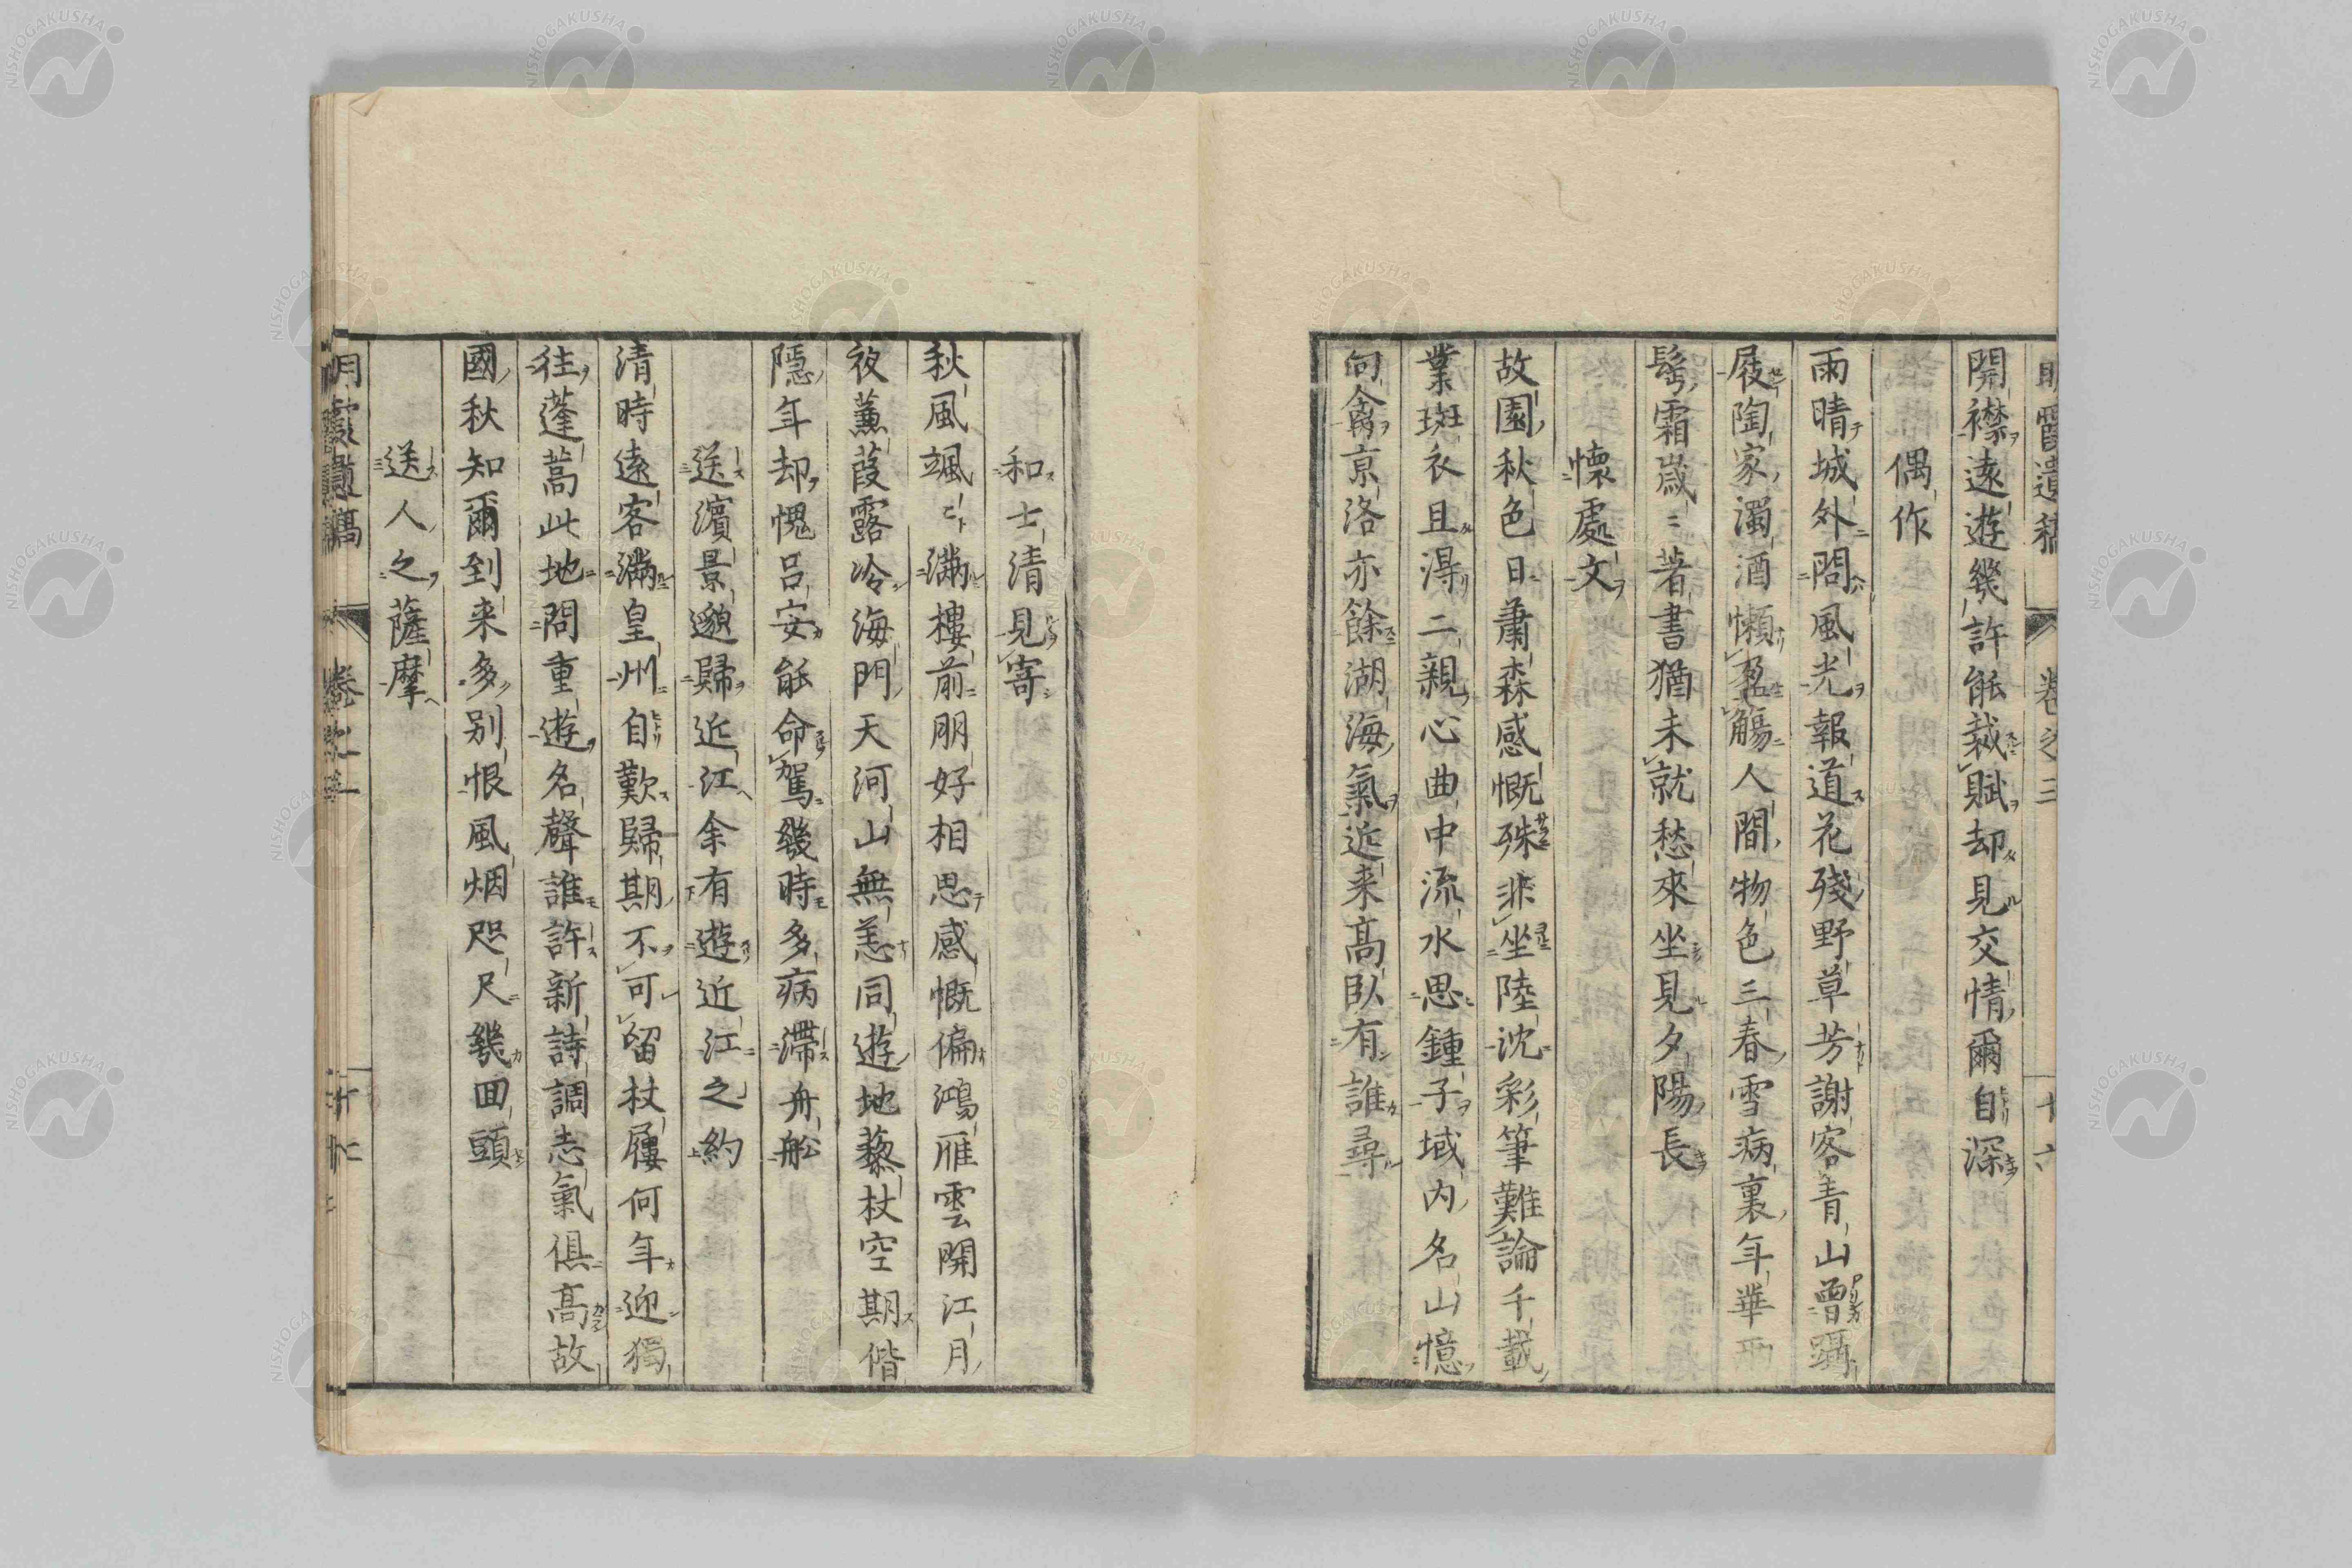 明霞遺稿 卷之三 十六
開襟遠遊幾許能裁賦却見交情爾自深
偶作
雨晴城外問風光報道花殘野草芳謝客青山曾躡
屐陶家濁酒懶盈觴人間物色三春雪病裏年華兩
鬢霜歲〻著書猶未就愁來坐見夕陽長
懷處文
故園秋色日蕭森感慨殊非坐陸沈彩筆難論千載
業斑衣且得二親心曲中流水思鍾子域内名山憶
向禽京洛亦餘湖海氣近来高臥有誰尋
和士清見寄
秋風颯〻滿樓前朋好相思感慨偏鴻雁雲開江月
夜蒹葭露冷海門天河山無恙同遊地藜杖空期偕
隱年却愧呂安能命駕幾時多病滯舟舩
送濵景邈歸近江余有遊近江之約
清時遠客滿皇州自歎歸期不可留杖屨何年迎獨
往蓬蒿此地問重遊名聲誰許新詩調志氣俱高故
國秋知爾到来多別恨風烟咫尺幾回頭
送人之薩摩
明霞遺稿 卷之三
NISHOGAKUSHA